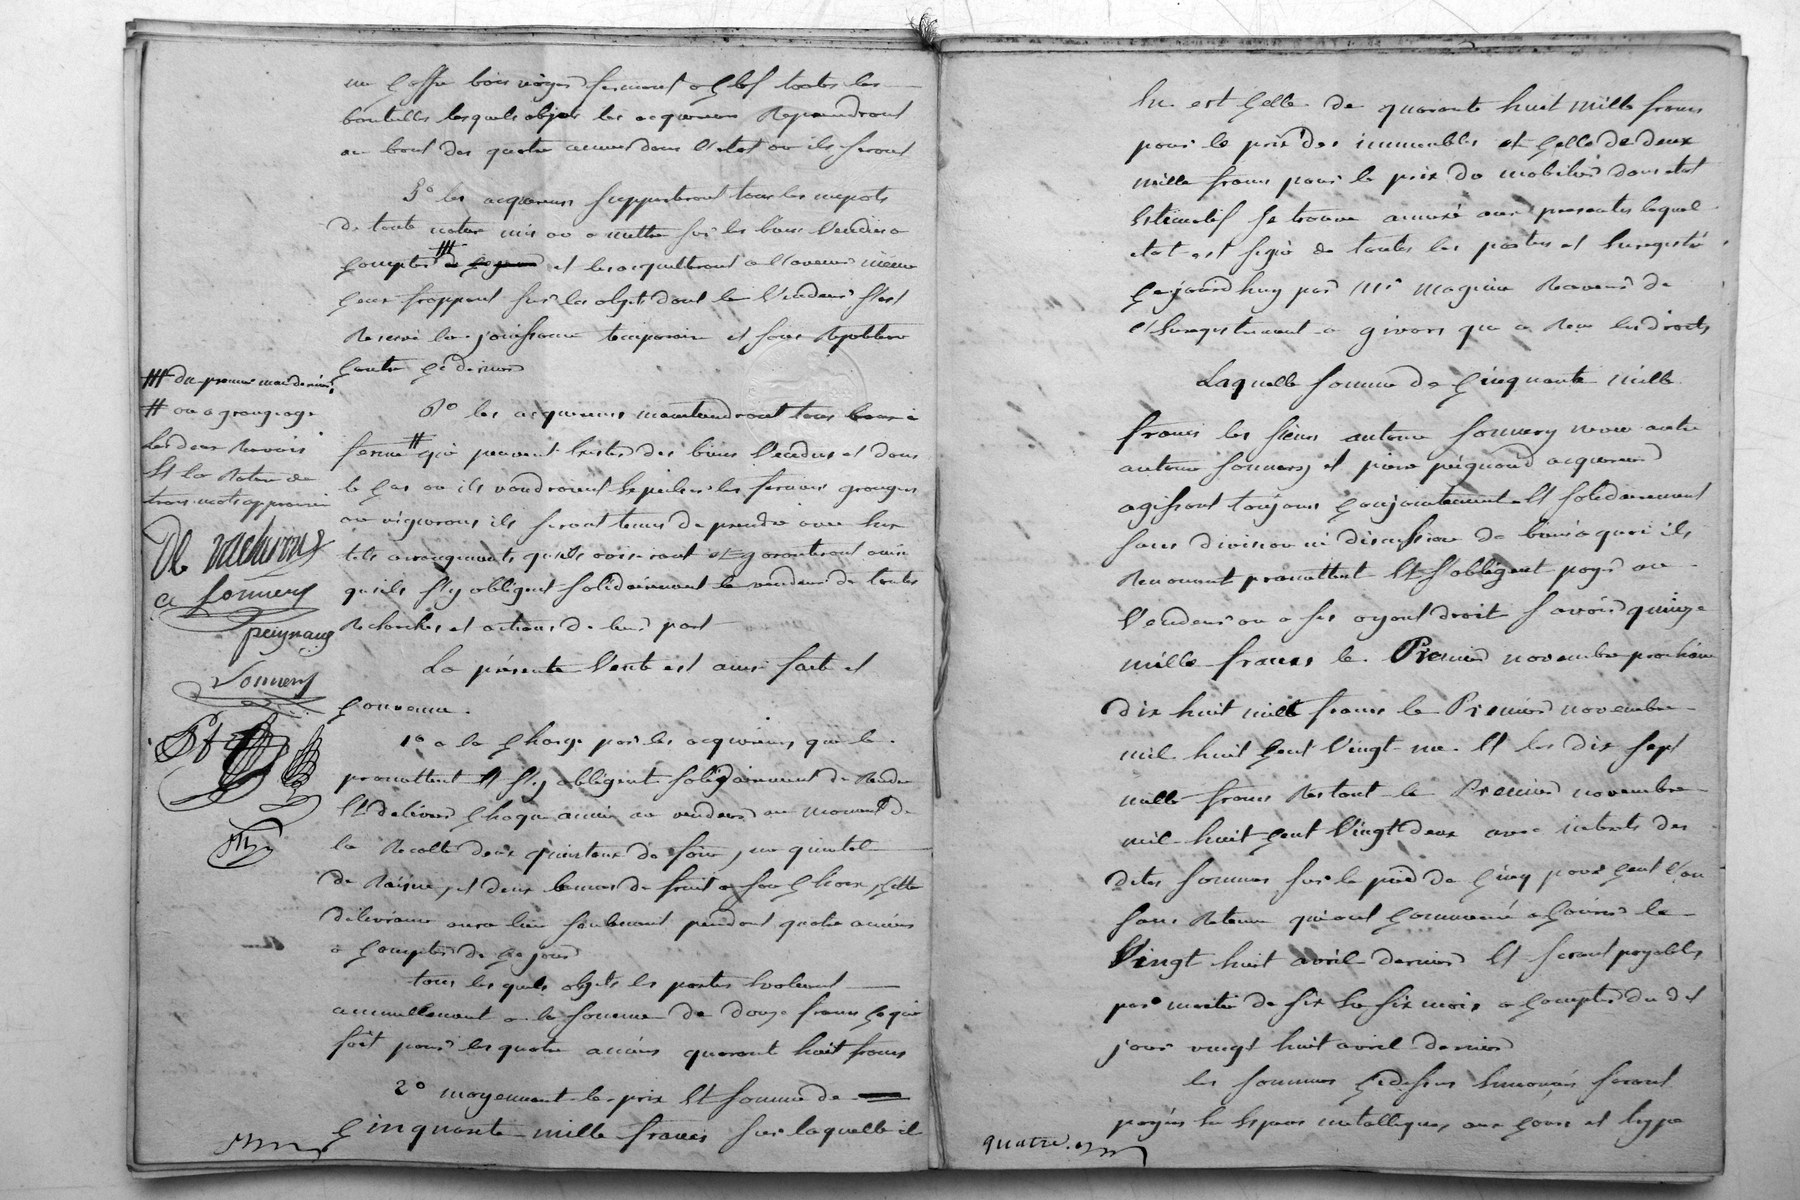 un coffre bois noyer fermant a clef toutes les
bouteilles lesquels objets les acquereurs Reprendront
au bout des quatre années dans l'Etat ou ils seront
5° les acquereurs supporteront tous les impots
de toute nature mis ou a mettre sur les biens Vendus a
compter ### et les acquitteront a l'avenir même
ceux frappant sur les objets dont le Vendeur s'est
Reservé la jouissance temporaire et sans Repetition
contre ce dernier
6° les acquereurs maintiendront tous baux a
ferme # qui peuvent Exister des biens Vendus et dans
le cas ou ils voudroient Expulser les fermiers grangers
ou vignerons ils seront tenus de prendre avec Eux
tels arrangements qu'ils aviseront et garantiront ainsi
qu'ils s'y obligent solidairement le vendeur de toutes
Recherches et actions de leur part
La présente Vente est ainsi faite et
convenue.
1° a la charge par les acquereurs, que le
promettent Et s'y obligent solidairement de Rendre
Et delivrer chaque année au vendeur au moment de
la Recolte deux quintaux de foin, un quintal
de Raisin, et deux bennes de fruit a son choix, cette
delivrance aura lieu seulement pendant quatre années
a compter de ce jour
tous lesquels objets les parties Evaluent
annuellement a la somme de douze francs ce qui
fait pour les quatre années quarante huit francs
2° moyennant le prix Et somme de
Cinquante mille francs sur laquelle il
### du premier mai dernier
# ou a grangeage
Les deux Renvois
Et la Rature de
trois mots approuvés
a Sonnery
peignaud
Sonnery
En est celle de quarante huit mille francs
pour le prix des immeubles et celle de deux
mille francs pour le prix du mobilier dont etat
Estimatif se trouve annexé aux presentes lequel
etat est signé de toutes les parties et Enregistré
cejourd'huy par Mr Receveur de
l'Enregistrement a givors qui a Recu les droits
Laquelle somme de Cinquante mille
francs les sieurs antoine Sonnery autre
antoine Sonnery et pierre peignaud acquereurs
agissant toujours conjointement Et solidairement
sans division ni discussion de biens a quoi ils
Renoncent promettent Et s'obligent payer au
Vendeur ou a ses ayant droit savoir quinze
mille francs le Premier novembre prochain
dix huit mille francs le Premier novembre
mil huit cent Vingt un. Et les dix sept
mille francs Restant le Premier novembre
mil huit cent Vingt deux avec interets des
dites sommes sur le pied de cinq pour cent l'an
sans Retenue qui ont commencé a courir le
Vingt huit avril dernier Et seront payables
par moitié de six En six mois a compter du dit
jour vingt huit avril dernier
les sommes cidessus Enoncées seront
payées En Especes metalliques aux cours et type
quatre.